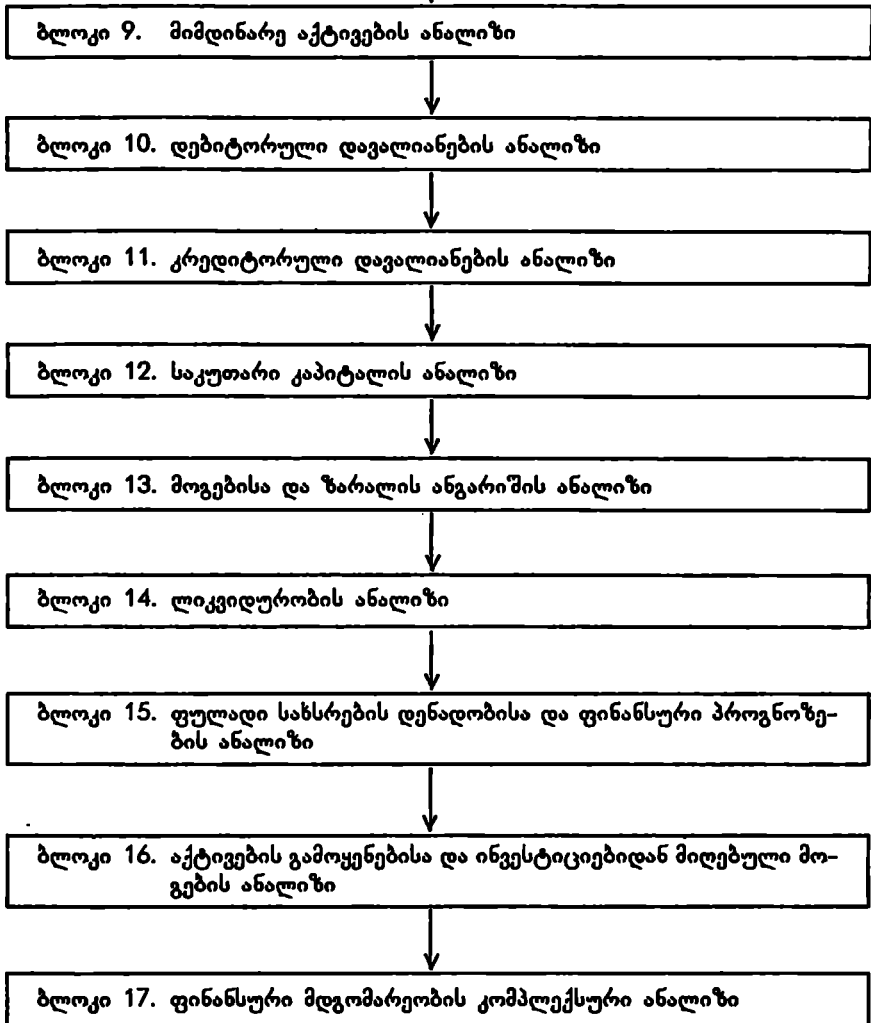 ბლოკი 9. მიმდინარე აქტივების ანალიზი
ბლოკი 10. დებიტორული დავალიანების ანალიზი
ბლოკი 11. კრედიტორული დავალიანების ანალიზი
ბლოკი 12. საკუთარი კაპიტალის ანალიზი
ბლოკი 13. მოგებისა და ზარალის ანგარიშის ანალიზი
ბლოკი 14. ლიკვიდურობის ანალიზი
ბლოკი 15. ფულადი სახსრების დენადობისა და ფინანსური პროგნოზე-
ბის ანალიზი
ბლოკი 16. აქტივების გამოყენებისა და ინვესტიციებიდან მიღებული მო-
გების ანალიზი
ბლოკი 17. ფინანსური მდგომარეობის კომპლექსური ანალიზი